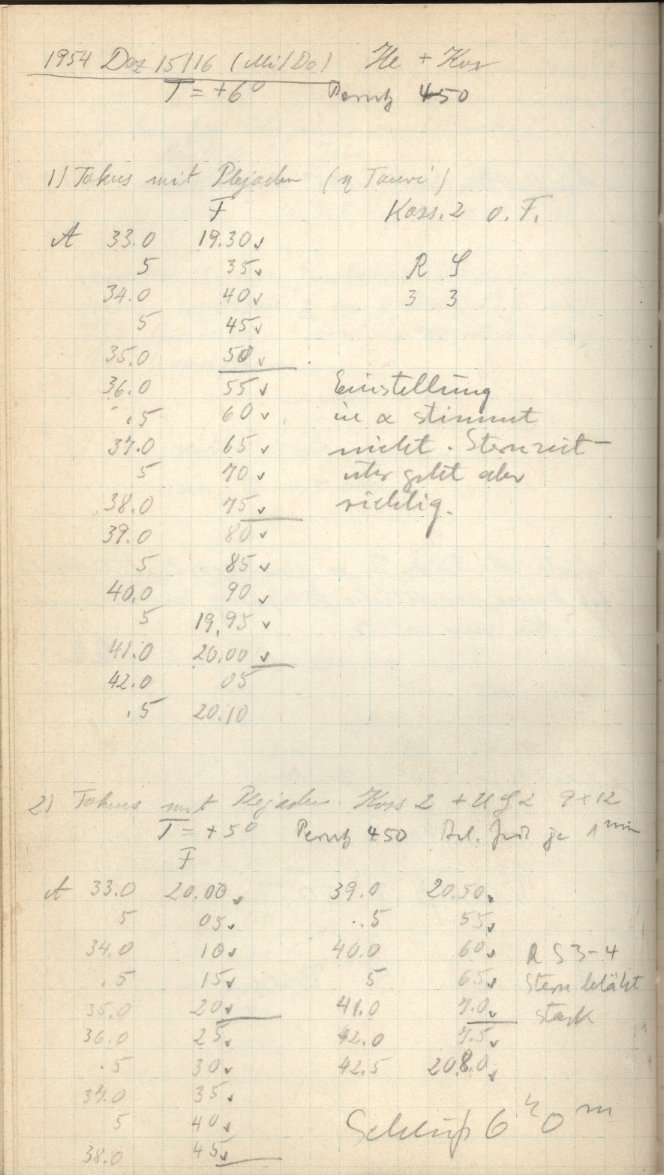 1954 Dez 15/16 (Mi/Do) He + Kos
T = +6° Perutz 450
1) Fokus mit Plejaden (η Tauri)
F Kass. 2 o. F.
A 33.0 19.30 v
5 35 v R S
34.0 40 v 3 3
5 45 v
35.0 50 v
36.0 55 v Einstellung
.5 60 v in α stimmt
37.0 65 v nicht. Sternzeit-
5 70 v uhr geht aber
38.0 75 v richtig.
39.0 80 v
5 85 v
40.0 90 v
5 19.95 v
41.0 20.00 v
42.0 05
.5 20.10
2) Fokus mit Plejaden. Kass 2 + UG2 9×12
T = +5° Perutz 450 Bel. je 1 min
F
A 33.0 20.00 v 39.0 20.50 v
5 05 v .5 55 v
34.0 10 v 40.0 60 v R S 3-4
.5 15 v 5 65 v Stern bläht
35.0 20 v 41.0 7.0 v stark
36.0 25 v 42.0 7.5 v
.5 30 v 42.5 20.80 v
37.0 35 v
5 40 v Schluß 6 h 0 m
38.0 45 v